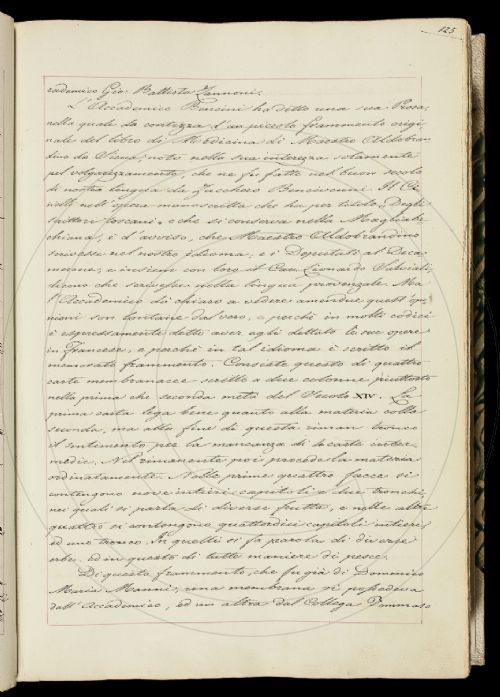 125
cademico Gio: Battista Zannoni.
L'Accademico Bencini ha detto una sua Prosa,
nella quale da contezza d'un piccolo frammento origi-
nale del libro di Medicina di Maestro Aldobran-
dino da Siena, noto nella sua interezza solamente
pel volgarizzamento, che ne fu fatto nel buon secolo
di nostra lingua da Zucchero Bencivenni. Il Ci-
nelli nell'opera manoscritta che ha per titolo, Degli
scittori toscani, e che si conserva nella Magliabe-
chiana, è d'avviso, che Maestro Aldobrandino
scrivesse nel nostro idioma, e i Deputati al Deca-
merone, e insiem con loro il Cav. Lionardo Salviati,
dicono che scrivesse nella lingua provenzale. Ma
l'Accademico fa chiaro a vedere amendue quest'opi-
nioni son lontane dal vero, e perchè in molti codici
è espressamente detto aver egli dettato le sue opere
in Francese, e perchè in tal idioma è scritto il
mentovato frammento. Consiste questo di quattro
carte membranacee scritto a due colonne piuttosto
nella prima che seconda metà del Secolo XIV. La
prima carta lega bene quanto alla materia colla
seconda, ma alla fine di questa riman tronco
il sentimento per la mancanza di carte inter-
medie. Nel rimanente poi procede la materia
ordinatamente. Nelle prime quattro facce si
contengono nove intieri capitoli e due tronchi,
nei quali si parla di diverse frutta, e nelle altre
quattro si contengono quattordici capitoli intieri
ed uno tronco. In quelli si fa parola di diverse
erbe, ed in questo di tutte maniere di pesce.
Di questo frammento, che fu già di Domenico
Maria Manni, una membrana si possedeva
dall'Accademico, ed un altra dal Collega Tommaso